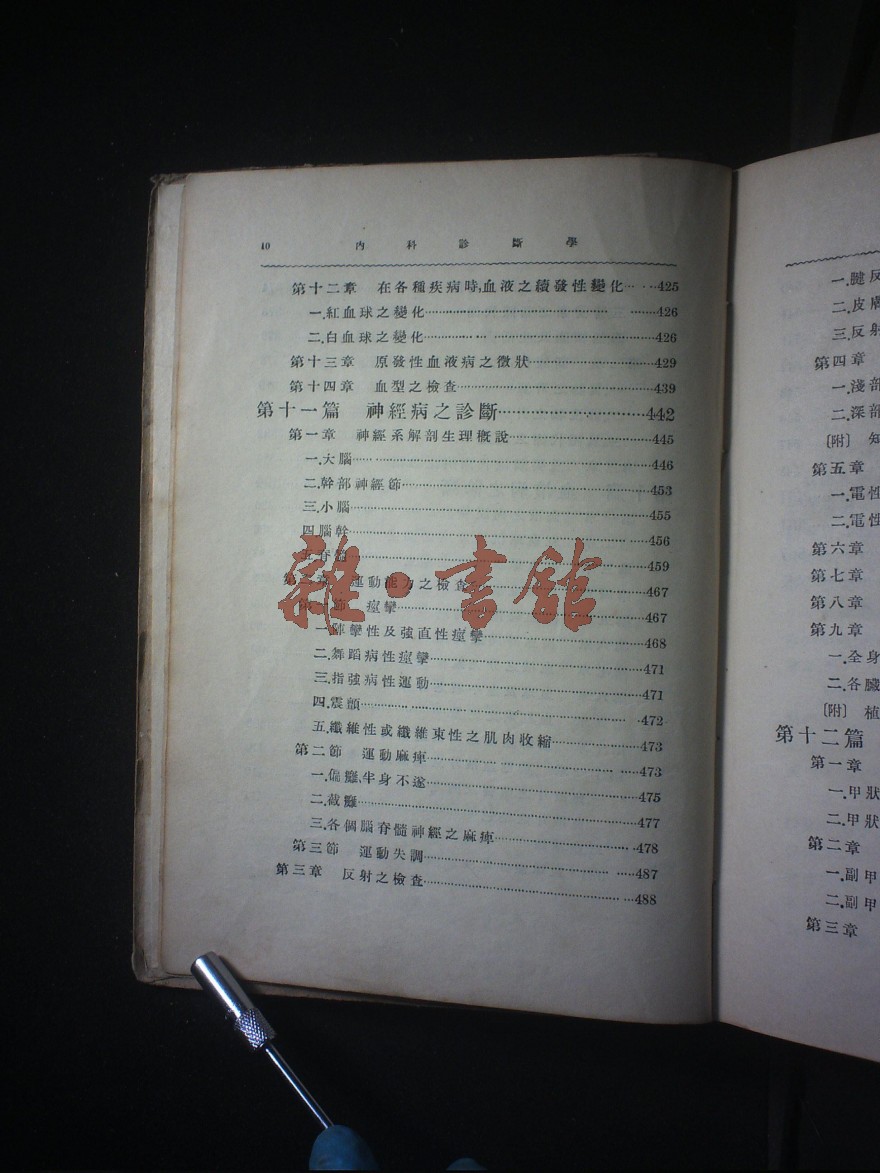 10 內科診斷學
第十二章 在各種疾病時,血液之續發性變化……425
一.紅血球之變化……426
二.白血球之變化……426
第十三章 原發性血液病之徵狀……429
第十四章 血型之檢查……439
第十一篇 神經病之診斷……442
第一章 神經系解剖生理概說……445
一.大腦……446
二.幹部神經節……453
三.小腦……455
四.腦幹……456
五.脊髓……459
第二章 運動能力之檢查……467
第一節 痙攣……467
一.陣攣性及強直性痙攣……468
二.舞蹈病性痙攣……471
三.指強病性運動……471
四.震顫……472
五.纖維性或纖維束性之肌肉收縮……473
第二節 運動麻痺……473
一.偏癱,半身不遂……475
二.截癱……477
三.各個腦脊髓神經之麻痺……478
第三節 運動失調……487
第三章 反射之檢查……488
雜·書館
一.腱反
二.皮膚
三.反射
第四章
一.淺部
二.深部
〔附〕 知
第五章
一.電性
二.電性
第六章
第七章
第八章
第九章
一.全身
二.各臟
〔附〕 植
第十二篇
第一章
一.甲狀
二.甲狀
第二章
一.副甲
二.副甲
第三章